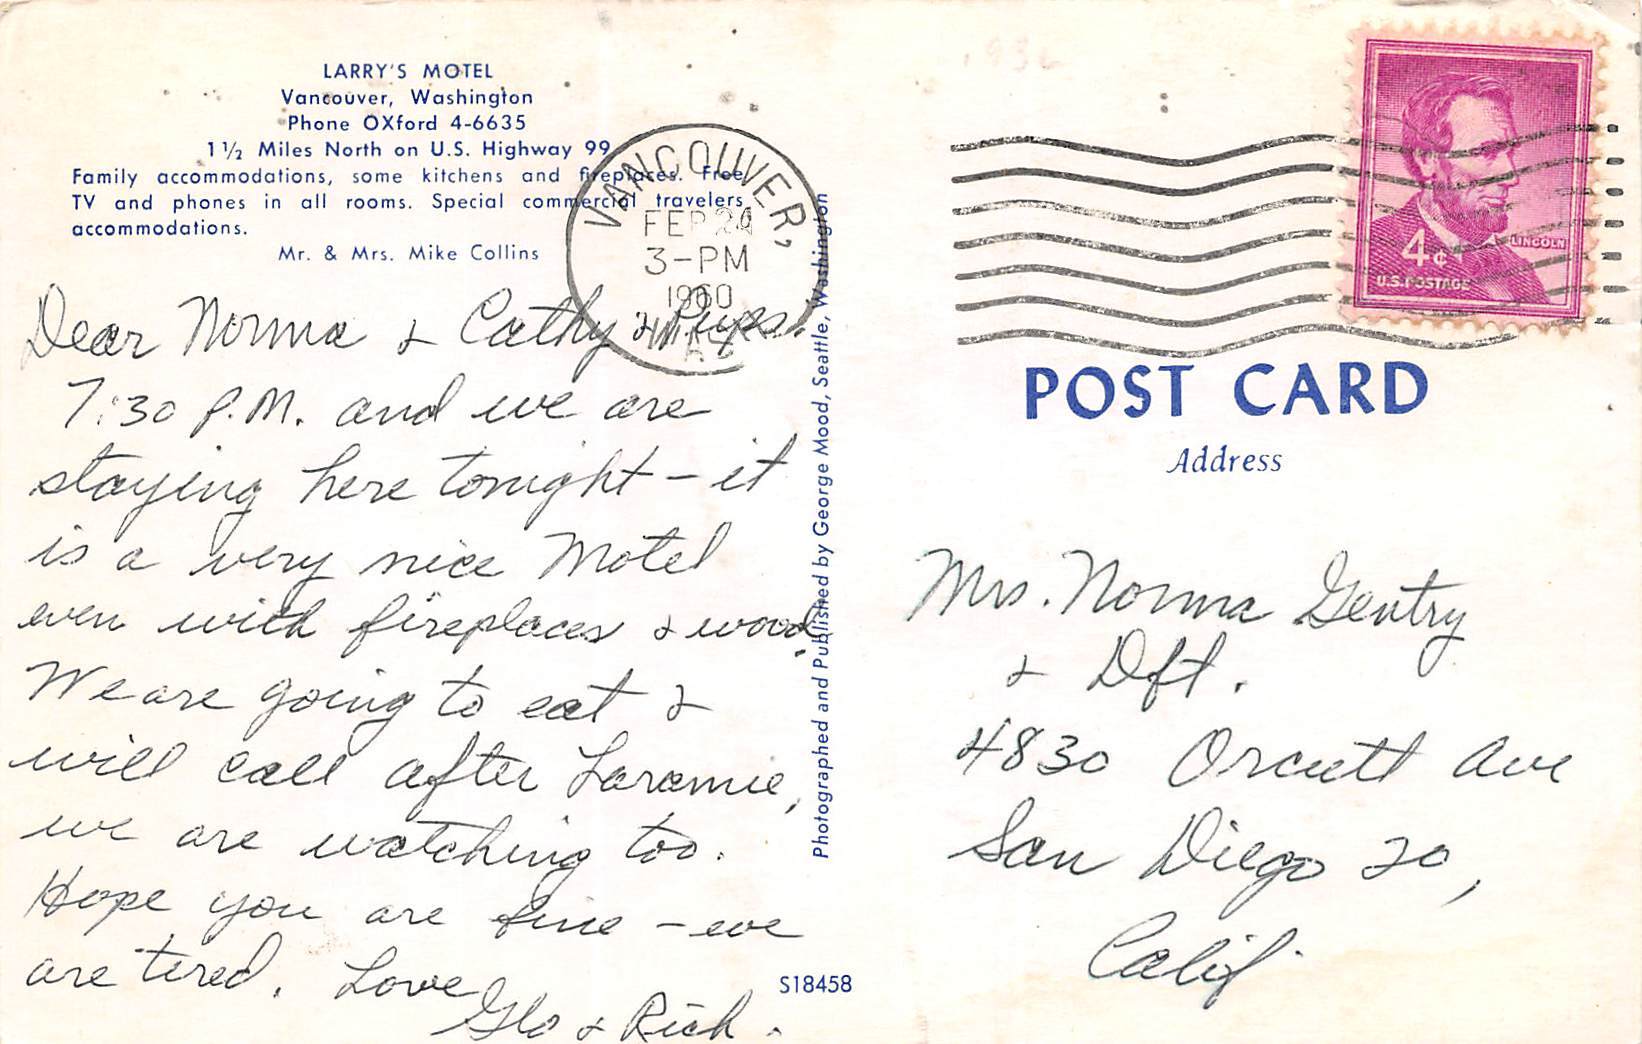 LARRY'S MOTEL
Vancouver, Washington
Phone OXford 4-6635
1 1/2 Miles North on U.S. Highway 99
Family accommodations, some kitchens and fireplaces. Free
TV and phones in all rooms. Special commercial travelers
accommodations.
Mr. & Mrs. Mike Collins
VANCOUVER,
FEB 24
3-PM
1960
Dear Norma & Cathy & Pups.
7:30 P.M. and we are
staying here tonight - it
is a very nice Motel
even with fireplaces & wood.
We are going to eat &
will call after Laramie,
we are watching too.
Hope you are fine - we
are tired. Love
Glo & Rich.
Photographed and Published by George Mood, Seattle, Washington
S18458
4¢
LINCOLN
U.S. POSTAGE
POST CARD
Address
Mrs. Norma Gentry
& Dft.
4830 Orcutt Ave
San Diego 20,
Calif.